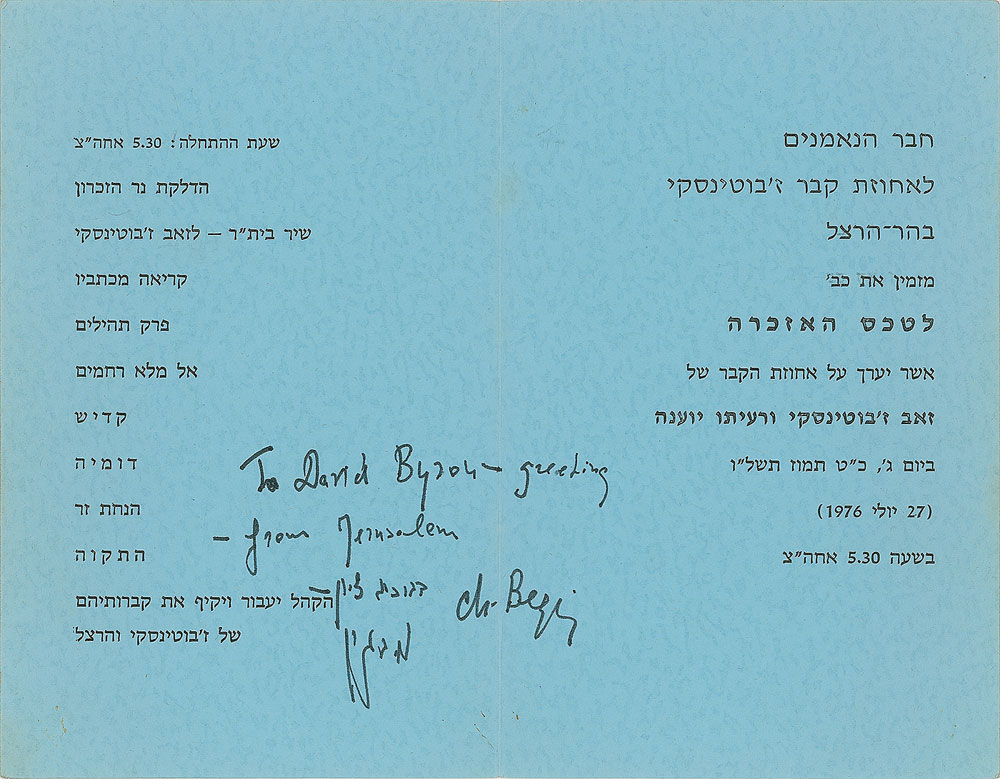 חבר הנאמנים
לאחוזת קבר ז'בוטינסקי
בהר־הרצל
מזמין את כב'
לטכס האזכרה
אשר יערך על אחוזת הקבר של
זאב ז'בוטינסקי ורעיתו יוענה
ביום ג', כ"ט תמוז תשל"ו
(27 יולי 1976)
בשעה 5.30 אחה"צ
שעת ההתחלה: 5.30 אחה"צ
הדלקת נר הזכרון
שיר בית"ר – לזאב ז'בוטינסקי
קריאה מכתביו
פרק תהילים
אל מלא רחמים
קדיש
דומיה
הנחת זר
התקוה
הקהל יעבור ויקיף את קברותיהם
של ז'בוטינסקי והרצל
To David Byron – greeting
– from Jerusalem
בברכת ציון
Begin